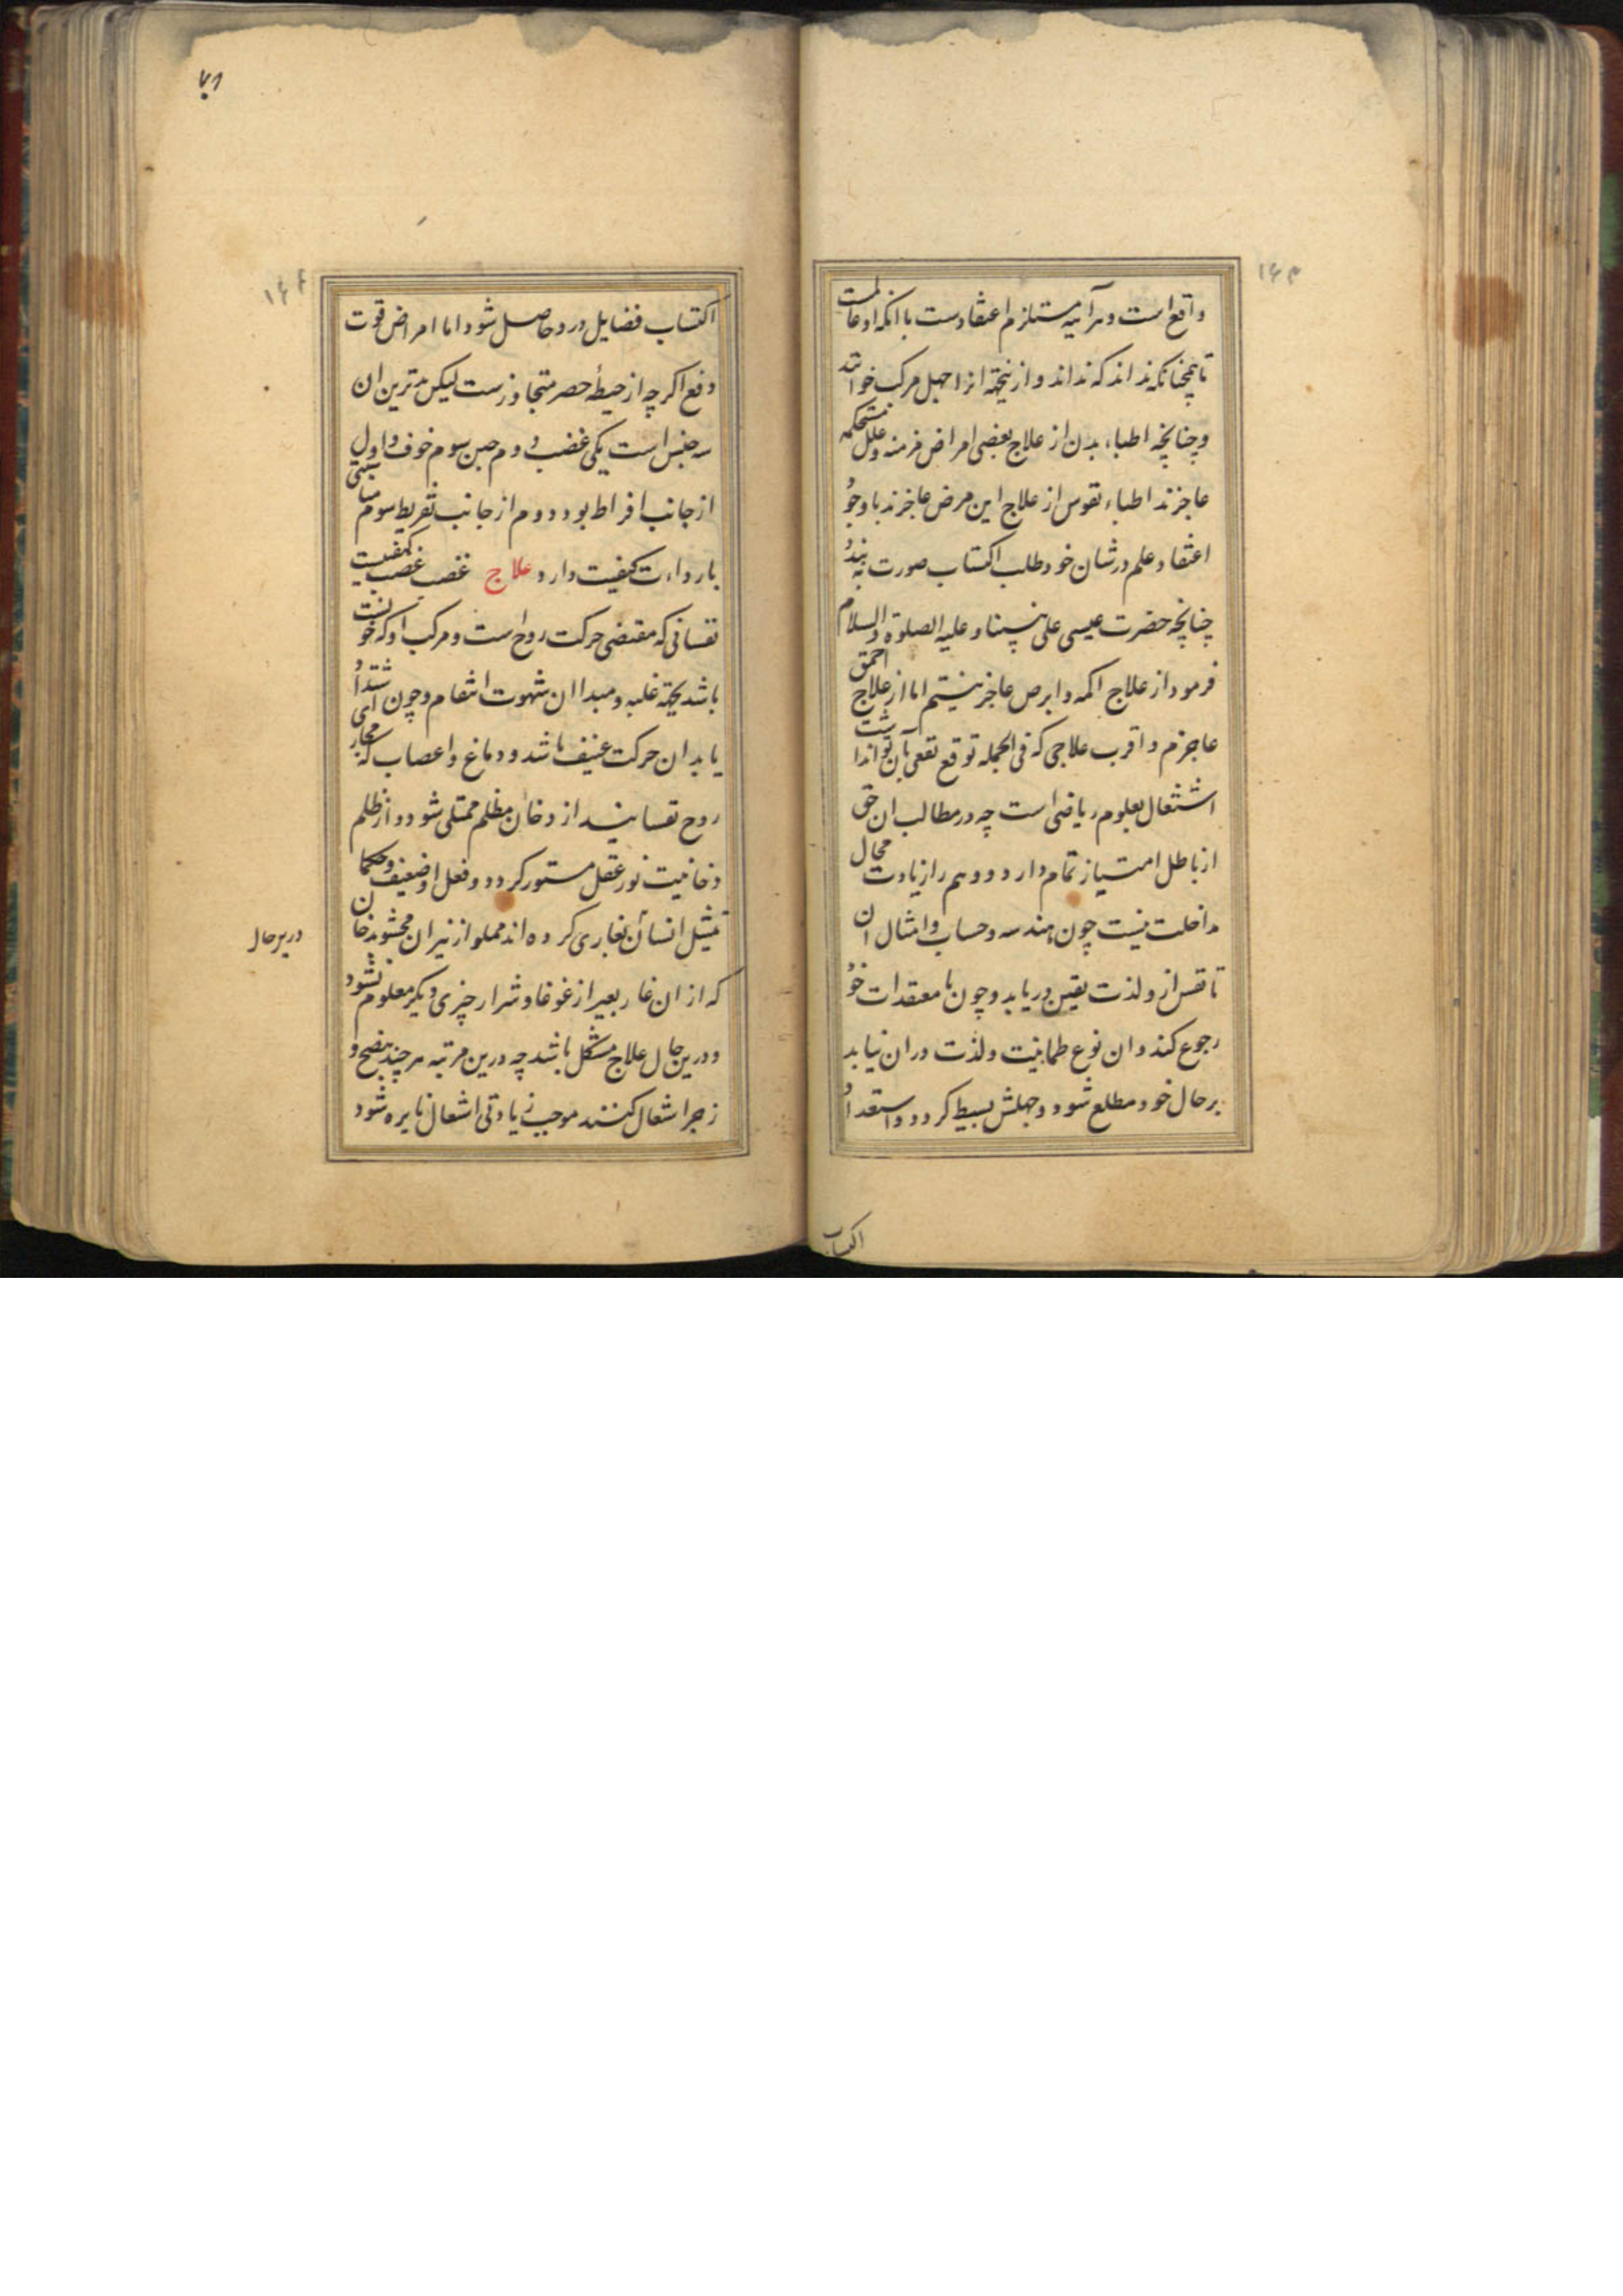 ۱۴۳
واقع است و هرآینه مستلزم اعتقادست بانکه او عالمست
تا همچنانکه نداند که نداند و ازینجهة انرا جهل مرکب خوانند
و چنانچه اطباء بدن از علاج بعضی امراض مزمنه و علل مستحکمه
عاجزند اطباء نفوس از علاج این مرض عاجزند با وجود
اعتقاد علم در شان خود طلب اکتساب صورت نه بندد
چنانچه حضرت عیسی علی نبینا و علیه الصلوة و السلام
فرمود از علاج اکمه و ابرص عاجز نیستم اما از علاج احمق
عاجزم و اقرب علاجی که فی الجمله توقع نفعی بآن توانداشت
اشتغال بعلوم ریاضی است چه در مطالب ان حق
از باطل امتیاز تمام دارد و وهم را زیادت مجال
مداخلت نیست چون هندسه و حساب و امثال ان
تا نفس ازو لذت یقین دریابد و چون با معتقدات خود
رجوع کند و ان نوع طمانینت و لذت دران نیابد
بر حال خود مطلع شود و جهلش بسیط کردد و استعداد
اکتساب
۷۱
۱۴۴
اکتساب فضایل درو حاصل شود اما امراض قوت
دفع اکرچه از حیطهٔ حصر متجاوزست لیکن بدترین ان
سه جنس است یکی غضب دوم جبن سوم خوف و اول
از جانب افراط بود دوم از جانب تفریط سوم مناسبتی
با رداءت کیفیت دارد علاج غضب غضب کیفیت
نفسانی که مقتضی حرکت روح است و مرکب او که خونست
باشد بجهة غلبه و مبدا ان شهوت انتقام و چون اشتداد
یابد ان حرکت عنیف باشد و دماغ و اعصاب که مجاری
روح نفسانیند از دخان مظلم ممتلی شود و از ظلم
دخانیت نور عقل مستور کردد و فعل او ضعیف و حکما
تمثیل انسان بغاری کرده اند مملو از نیران محشو بدخان
که از ان غار بغیر از غوغا و شرار چیزی دیکر معلوم نشود
و درین حال علاج مشکل باشد چه درین مرتبه هر چند بنصح و
زجر اشعال کنند موجب زیادتی اشعال نایره شود
درین حال